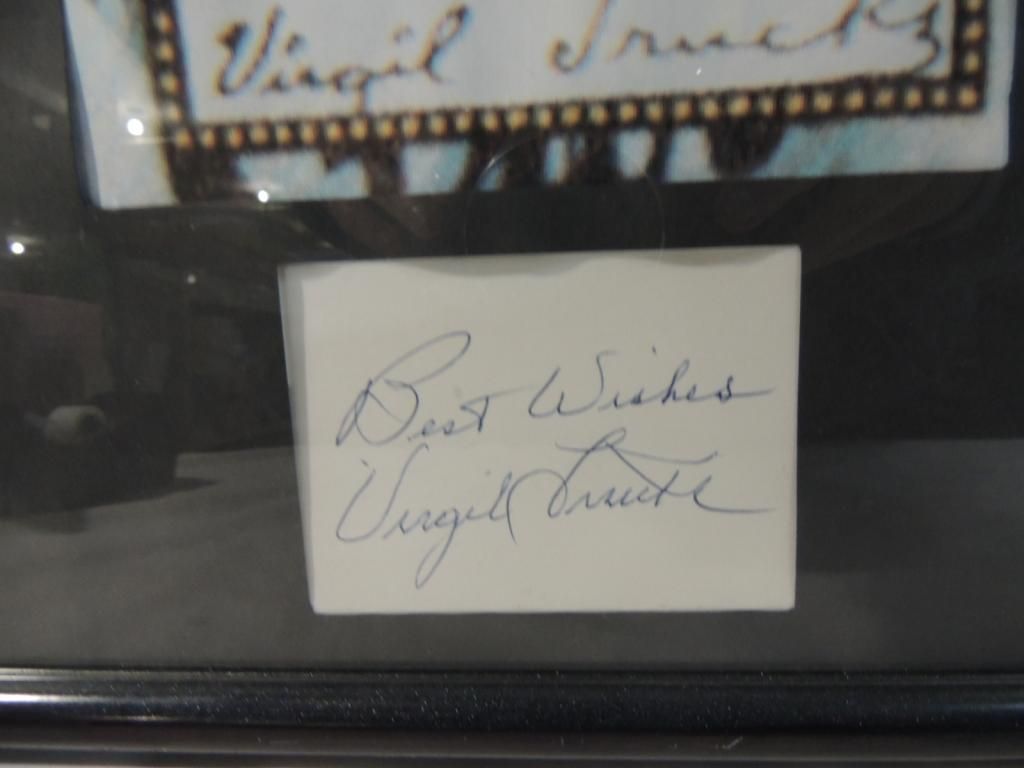 Virgil Trucks
Best Wishes
Virgil Trucks